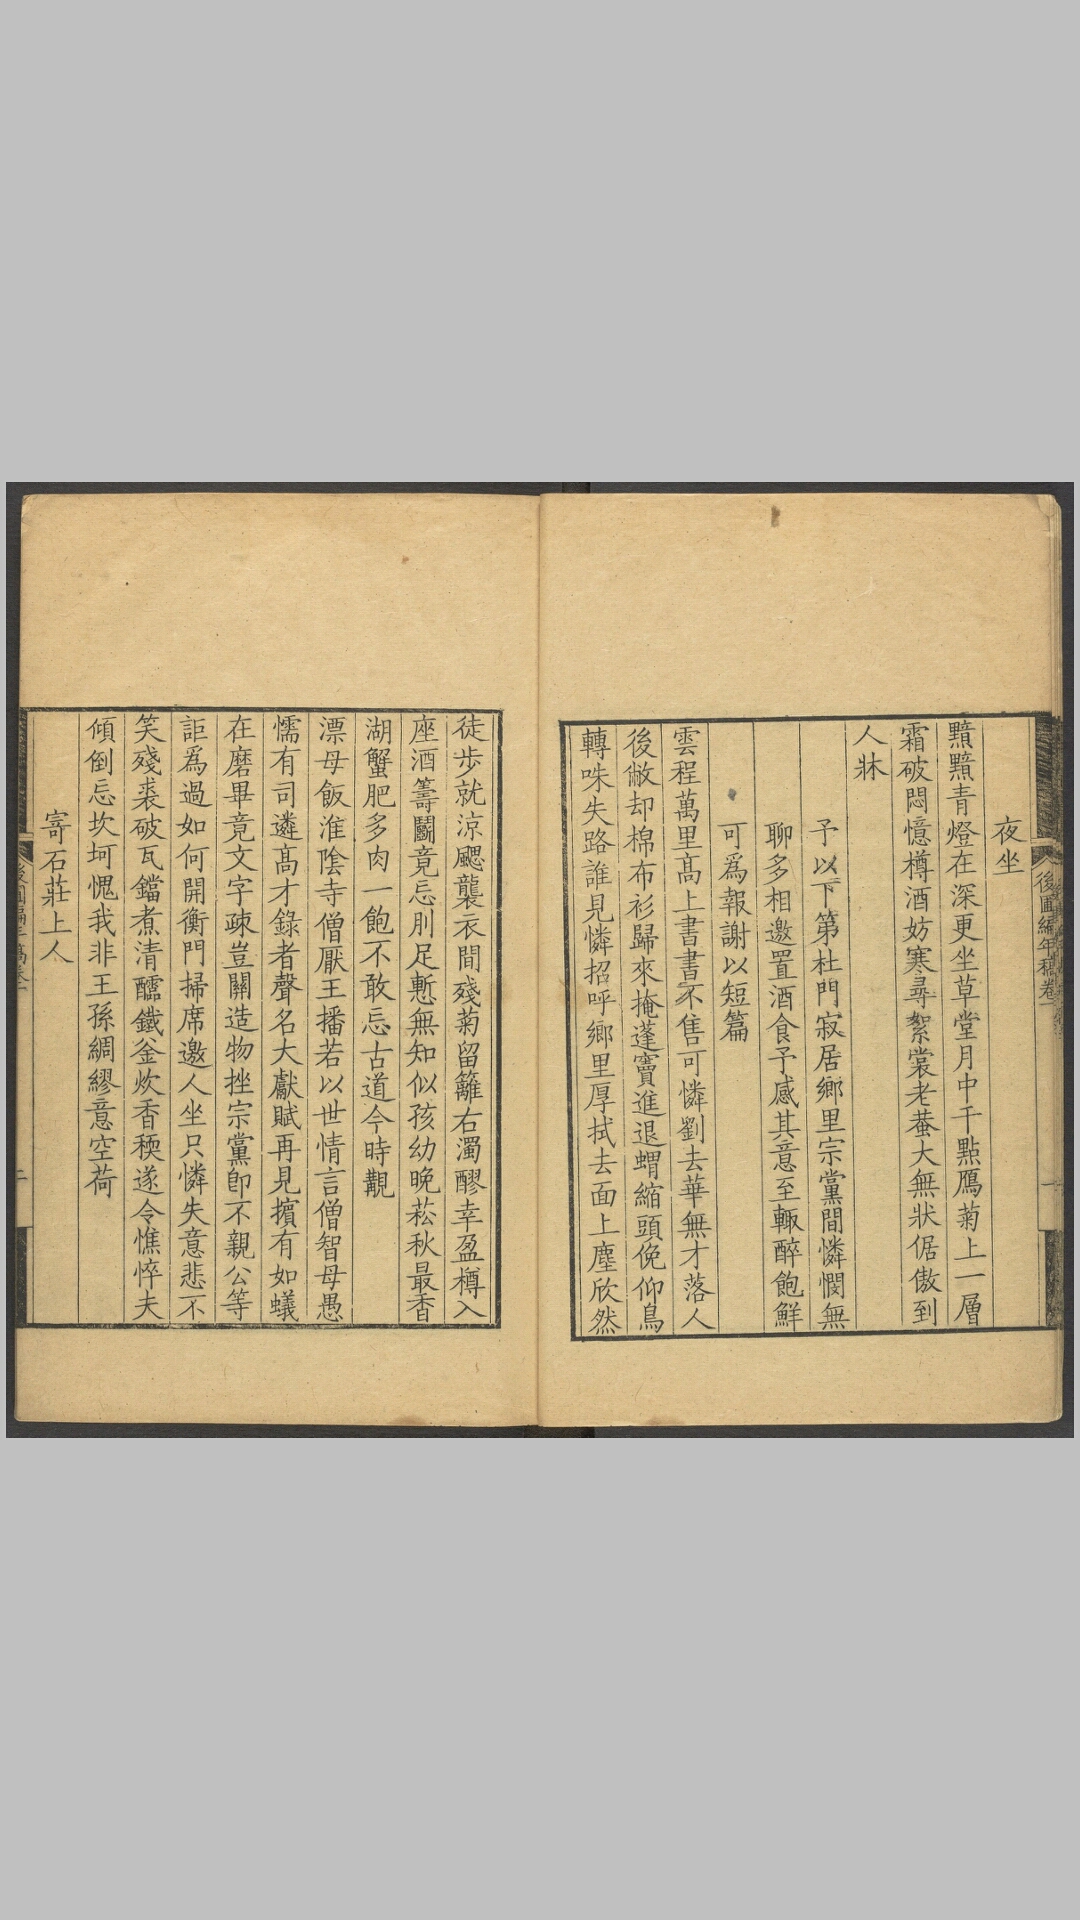 後圃編年稿卷一
夜坐
黯黯青燈在深更坐草堂月中千點鴈菊上一層
霜破悶憶樽酒妨寒尋絮裳老蚕大無狀倨傲到
人牀
予以下第杜門寂居鄉里宗黨間憐憫無
聊多相邀置酒食予感其意至輙醉飽鮮
可爲報謝以短篇
雲程萬里高上書書不售可憐劉去華無才落人
後敝却棉布衫歸來掩蓬竇進退蝟縮頭俛仰鳥
轉咮失路誰見憐招呼鄉里厚拭去面上塵欣然
徒步就涼颸襲衣間殘菊留籬右濁醪幸盈樽入
座酒籌鬭竟忘刖足慙無知似孩幼晚菘秋最香
湖蟹肥多肉一飽不敢忘古道今時覯
漂母飯淮陰寺僧厭王播若以世情言僧智母愚
懦有司遴高才錄者聲名大獻賦再見擯有如蟻
在磨畢竟文字疎豈關造物挫宗黨卽不親公等
詎爲過如何開衡門掃席邀人坐只憐失意悲不
笑殘裘破瓦鐺煮清醹鐵釜炊香稬遂令憔悴夫
傾倒忘坎坷愧我非王孫綢繆意空荷
寄石莊上人